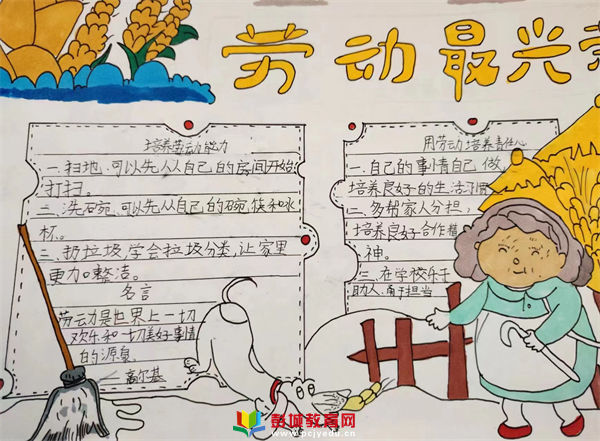 劳动最光荣
培养劳动能力
一、扫地、可以先从自己的房间开始
打扫。
二、洗碗、可以先从自己的碗、筷和水
杯。
三、扔垃圾,学会垃圾分类,让家里
更加整洁。
名言
劳动是世界上一切
欢乐和一切美好事情
的源泉
高尔基
用劳动培养责任心
一、自己的事情自己做,
培养良好的生活习惯
二、多帮家人分担,
培养良好合作精
神。
三、在学校乐于
助人,勇于担当
彭城教育网
www.pcjyedu.cn